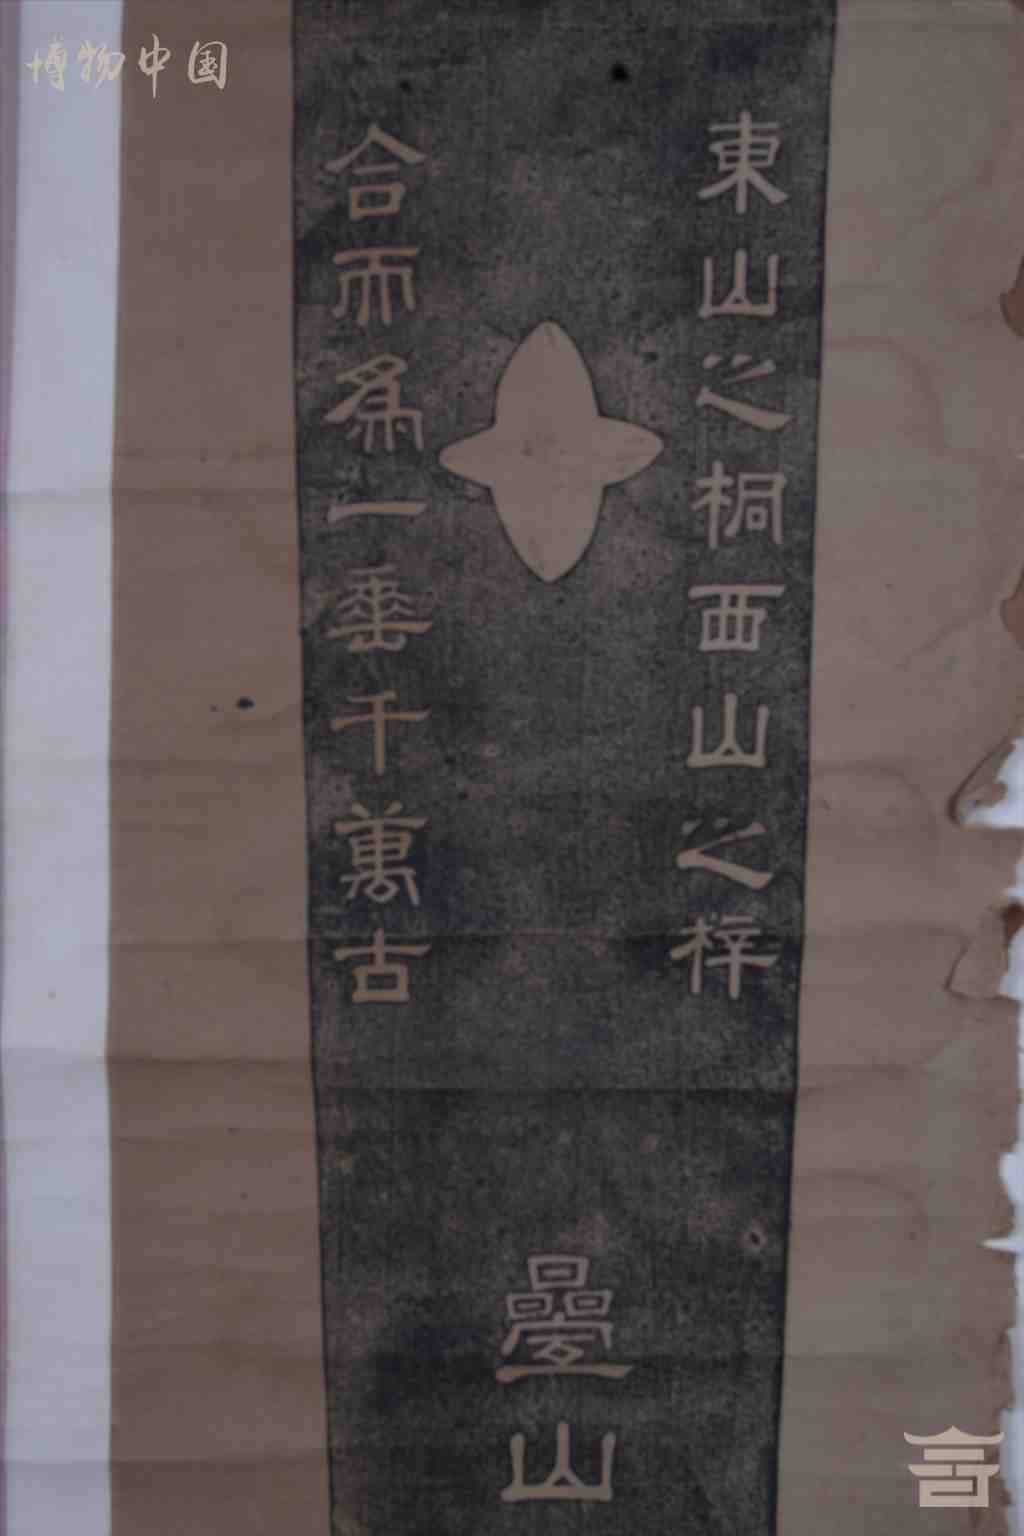 博物中国
東山之桐西山之梓
合而為一垂千萬古
疊山